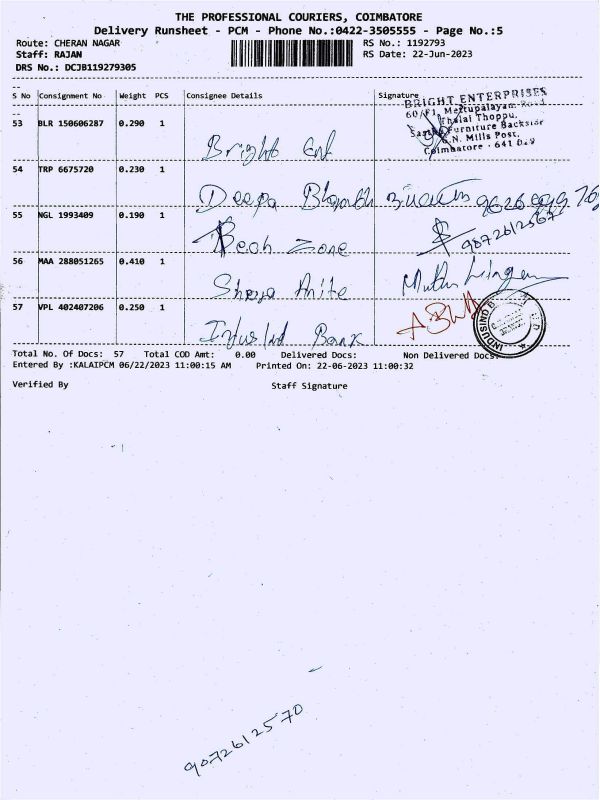 THE PROFESSIONAL COURIERS, COIMBATORE
Delivery Runsheet - PCM - Phone No.:0422-3505555 - Page No.:5
Route: CHERAN NAGAR RS No.: 1192793
Staff: RAJAN RS Date: 22-Jun-2023
DRS No.: DCJB119279305
S No Consignment No Weight PCS Consignee Details Signature
BRIGHT ENTERPRISES
60/F1, Mettupalayam Road
Thalai Thoppu,
Furniture Backside
G.N. Mills Post,
Coimbatore - 641 029
53 BLR 150606287 0.290 1 Bright Ent
54 TRP 6675720 0.230 1 Deepa
55 NGL 1993409 0.190 1 Zone 9872612567
56 MAA 288051265 0.410 1 Anite Muthu Lingam
57 VPL 402407206 0.250 1 Indus Ind Bank
INDUSIND B
Total No. Of Docs: 57 Total COD Amt: 0.00 Delivered Docs: Non Delivered Docs:
Entered By :KALAIPCM 06/22/2023 11:00:15 AM Printed On: 22-06-2023 11:00:32
Verified By Staff Signature
9072612570